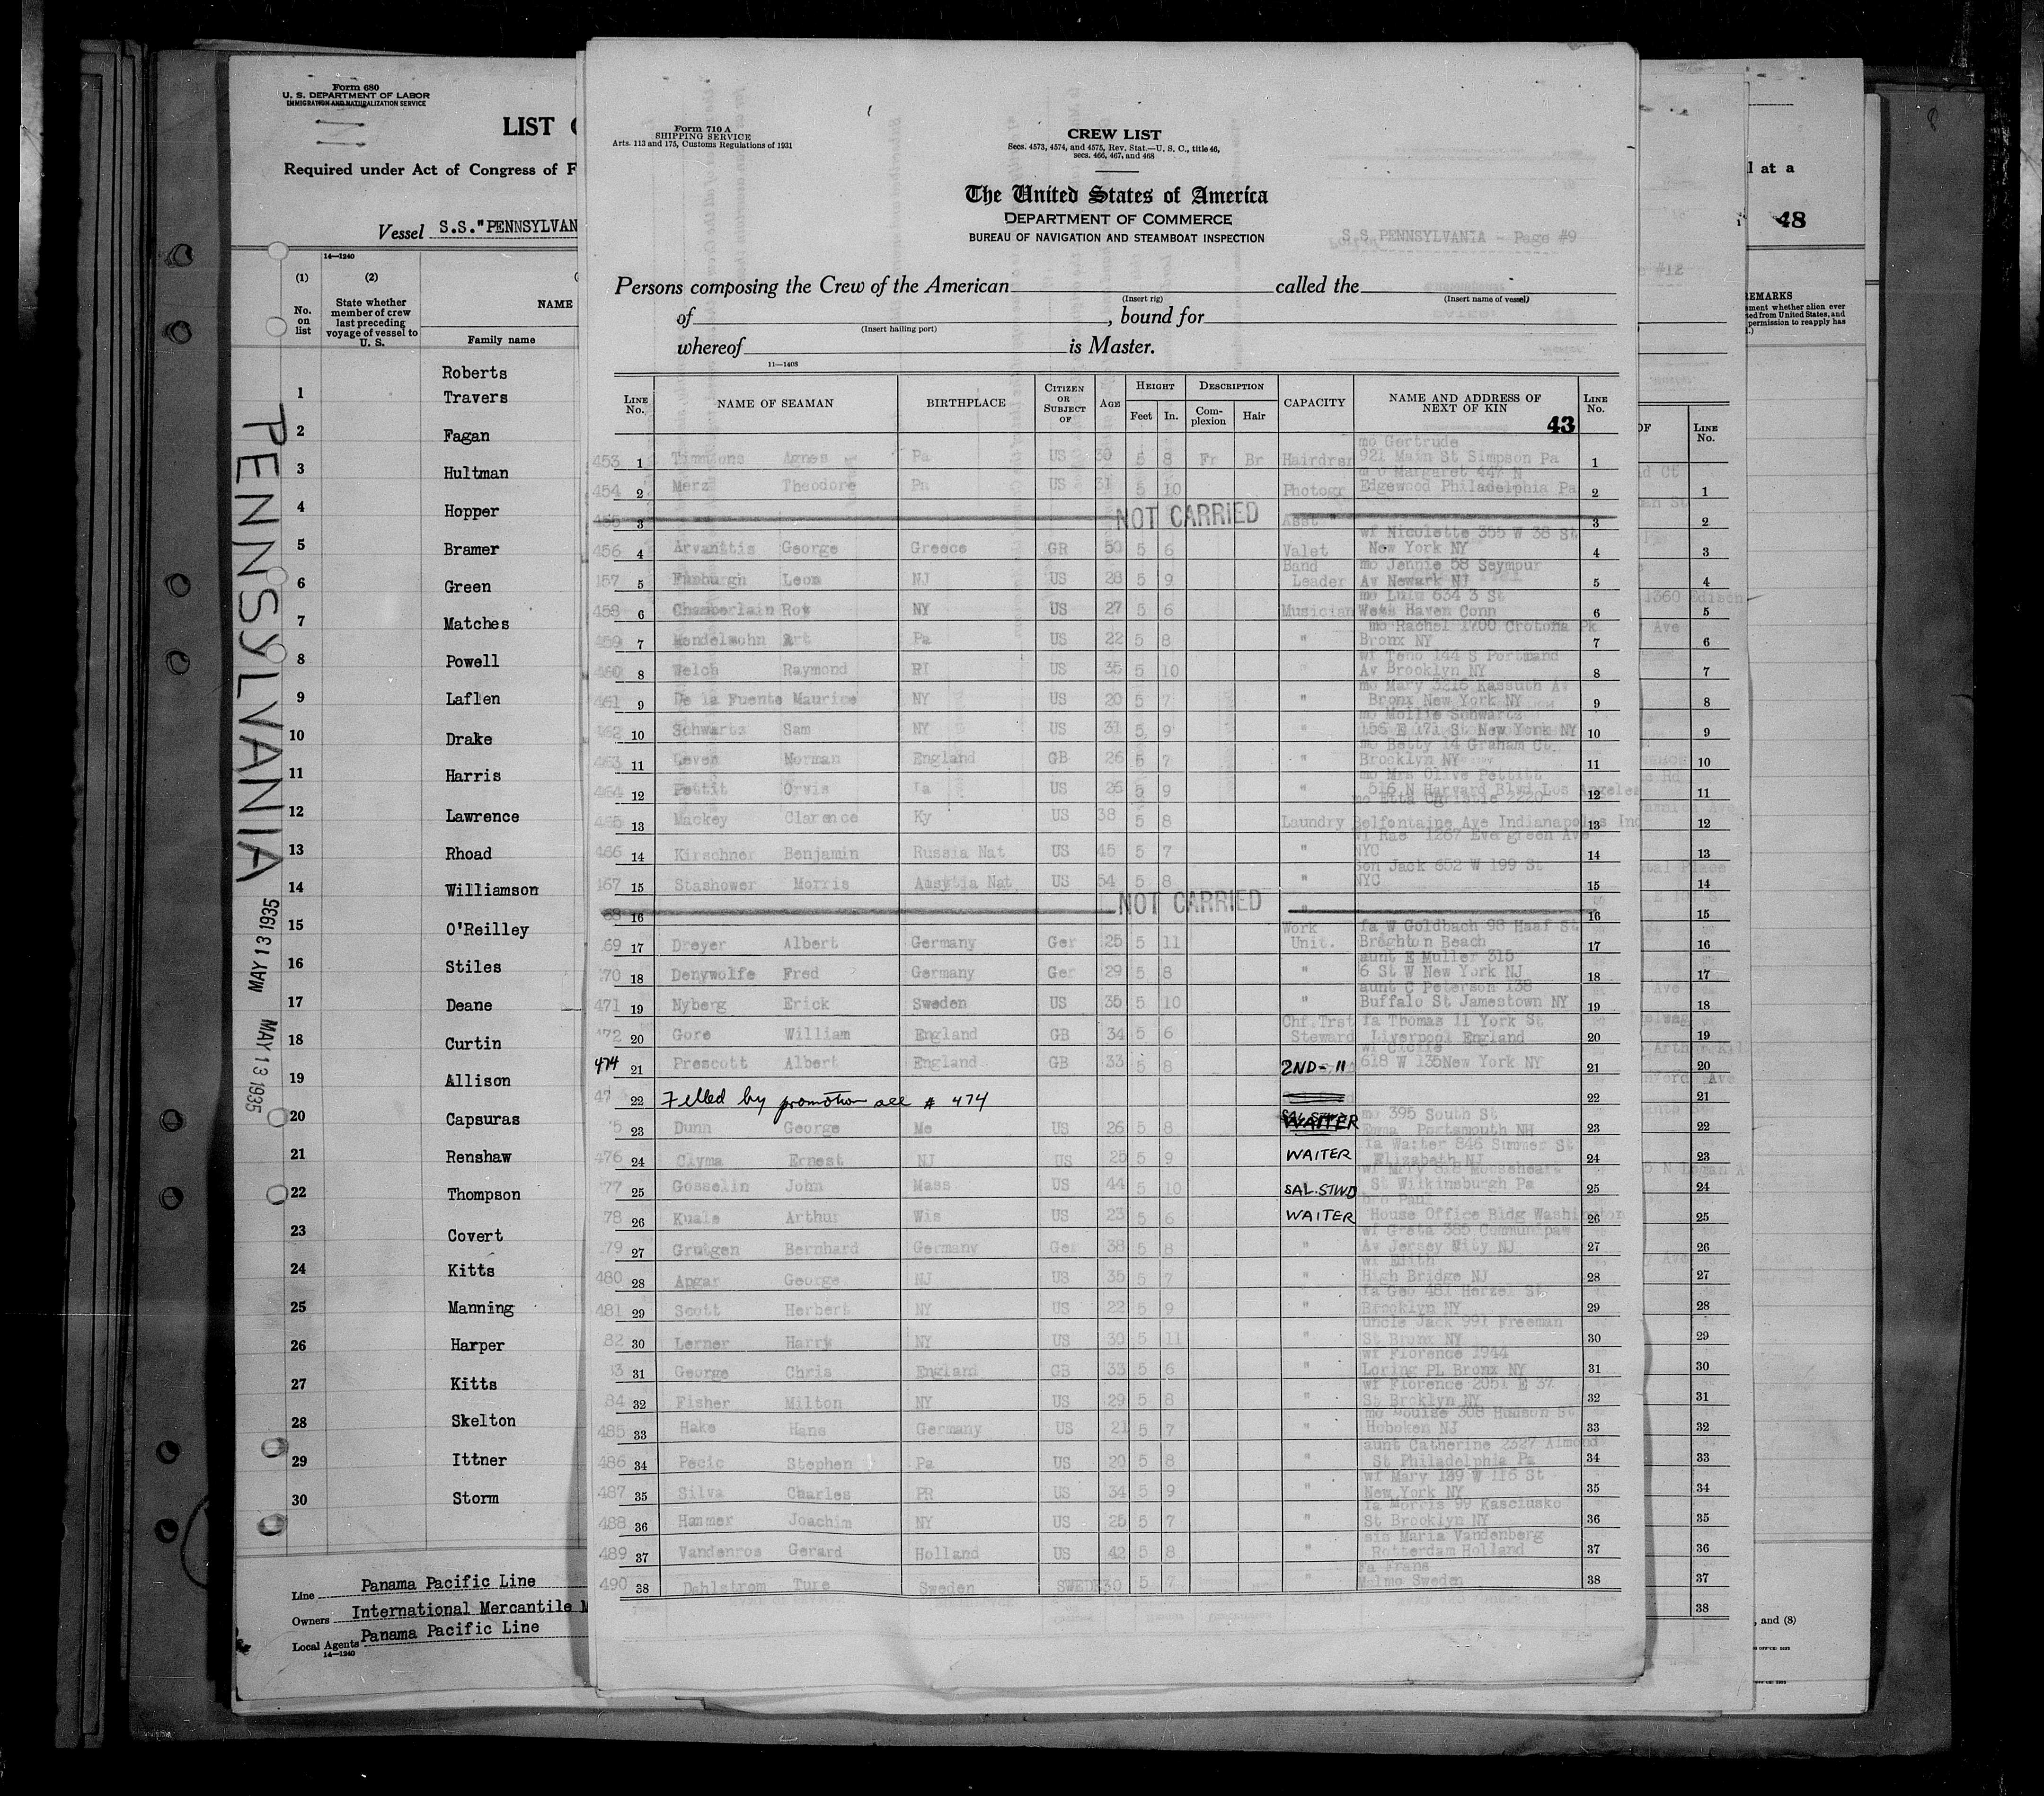 Form 680
U. S. DEPARTMENT OF LABOR
IMMIGRATION AND NATURALIZATION SERVICE
LIST
Required under Act of Congress of F
Vessel S.S."PENNSYLVAN
14—1240
(1) (2)
No. on list State whether member of crew last preceding voyage of vessel to U. S. NAME
Family name
Roberts
1 Travers
2 Fagan
3 Hultman
4 Hopper
5 Bramer
6 Green
7 Matches
8 Powell
9 Laflen
10 Drake
11 Harris
12 Lawrence
13 Rhoad
14 Williamson
15 O'Reilley
16 Stiles
17 Deane
18 Curtin
19 Allison
20 Capsuras
21 Renshaw
22 Thompson
23 Covert
24 Kitts
25 Manning
26 Harper
27 Kitts
28 Skelton
29 Ittner
30 Storm
Line Panama Pacific Line
Owners International Mercantile M
Local Agents Panama Pacific Line
14—1240
PENNSYLVANIA
MAY 13 1935
MAY 13 1935
Form 710 A
SHIPPING SERVICE
Arts. 113 and 175, Customs Regulations of 1931
CREW LIST
Secs. 4573, 4574, and 4575, Rev. Stat.—U. S. C., title 46,
secs. 466, 467, and 468
The United States of America
DEPARTMENT OF COMMERCE
BUREAU OF NAVIGATION AND STEAMBOAT INSPECTION
S.S. PENNSYLVANIA - Page #9
Persons composing the Crew of the American called the
(Insert rig) (Insert name of vessel)
of , bound for
(Insert hailing port)
whereof is Master.
11—1408
LINE No. NAME OF SEAMAN BIRTHPLACE CITIZEN OR SUBJECT OF AGE HEIGHT Feet In. DESCRIPTION Complexion Hair CAPACITY NAME AND ADDRESS OF NEXT OF KIN LINE No.
43
mo Gertrude
453 1 Timmons Agnes Pa US 30 5 8 Fr Br Hairdrsr 921 Main St Simpson Pa 1
mo Margaret 447 N
454 2 Merz Theodore Pa US 31 5 10 Photogr Edgewood Philadelphia Pa 2
3 NOT CARRIED Asst 3
wf Nicolette 355 W 38 St
456 4 Arvanitis George Greece GR 50 5 6 Valet New York NY 4
Band mo Jennie 58 Seymour
157 5 Leon NJ US 28 5 9 Leader Av Newark NJ 5
mo Lulu 634 3 St
458 6 Chamberlain Roy NY US 27 5 6 Musician West Haven Conn 6
mo Rachel 1700 Crotona Pk
459 7 Mendelsohn Art Pa US 22 5 8 " Bronx NY 7
wf Teno 144 S Portland
460 8 Welch Raymond RI US 35 5 10 " Av Brooklyn NY 8
mo Mary 3216 Kassuth Av
461 9 De la Fuente Maurice NY US 20 5 7 " Bronx New York NY 9
mo Mollie Schwartz
462 10 Schwartz Sam NY US 31 5 9 " 156 E 171 St New York NY 10
mo Betty 14 Graham Ct.
463 11 Norman England GB 26 5 7 " Brooklyn NY 11
mo Mrs Olive Pettitt
464 12 Pettit Orvis Ia US 26 5 9 " 516 N Harvard Blvd Los Angeles 12
mo Etta Christie 2220
465 13 Mackey Clarence Ky US 38 5 8 Laundry Belfontaine Ave Indianapolis Ind 13
wf Rae 1267 Evergreen Ave
466 14 Kirschner Benjamin Russia Nat US 45 5 7 " NYC 14
Son Jack 652 W 199 St
467 15 Stashower Morris Nat US 54 5 8 " NYC 15
16 NOT CARRIED " 16
Work fa W Goldbach 98 Haaf St
69 17 Dreyer Albert Germany Ger 25 5 11 Unit. Brighton Beach 17
aunt E Muller 315
70 18 Denywolfe Fred Germany Ger 29 5 8 " 6 St W New York NJ 18
aunt C Peterson 138
471 19 Nyberg Erick Sweden US 35 5 10 " Buffalo St Jamestown NY 19
Chf Trst fa Thomas 11 York St
472 20 Gore William England GB 34 5 6 Steward Liverpool England 20
474 21 Prescott Albert England GB 33 5 8 2ND-" 618 W 135New York NY 21
47 22 Filled by promotion see # 474 22
mo 395 South St
5 23 Dunn George Me US 26 5 8 WAITER Emma Portsmouth NH 23
fa Walter 846 Summer St
476 24 Clyma Ernest NJ US 25 5 9 WAITER Elizabeth NJ 24
77 25 Gosselin John Mass US 44 5 10 SAL.STWD St Wilkinsburgh Pa 25
bro Paul
78 26 Kuale Arthur Wis US 23 5 6 WAITER House Office Bldg Washington 26
wf Greta 385 Communipaw
79 27 Grutgen Bernhard Germany Ger 38 5 8 " Av Jersey City NJ 27
wf Edith
480 28 Apgar George NJ US 35 5 7 " High Bridge NJ 28
fa Geo 481 Herzel St
481 29 Scott Herbert NY US 22 5 9 " Brooklyn NY 29
uncle Jack 991 Freeman
82 30 Lerner Harry NY US 30 5 11 " St Bronx NY 30
wf Florence 1944
3 31 George Chris England GB 33 5 6 " Loring PL Bronx NY 31
wf Florence 2051 E 37
84 32 Fisher Milton NY US 29 5 8 " St Broklyn NY 32
mo Louise 308 Hudson St
485 33 Hake Hans Germany US 21 5 7 " Hoboken NJ 33
aunt Catherine 2327 Almond
486 34 Pecic Stephen Pa US 20 5 8 " St Philadelphia Pa 34
wf Mary 139 W 116 St
487 35 Silva Charles PR US 34 5 9 " New York NY 35
fa Morris 99 Kasciusko
488 36 Hammer Joachim NY US 25 5 7 " St Brooklyn NY 36
sis Maria Vandenberg
489 37 Vandenros Gerard Holland US 42 5 8 " Rotterdam Holland 37
fa Frans
490 38 Dahlstrom Ture Sweden SWEDE 30 5 7 " Malmo Sweden 38
l at a
48
REMARKS
LINE No.
1
2
3
4
1360 Edison
5
6
7
8
9
10
11
12
13
14
15
16
17
18
19
20
21
22
23
24
25
26
27
28
29
30
31
32
33
34
35
36
37
38
, and (8)